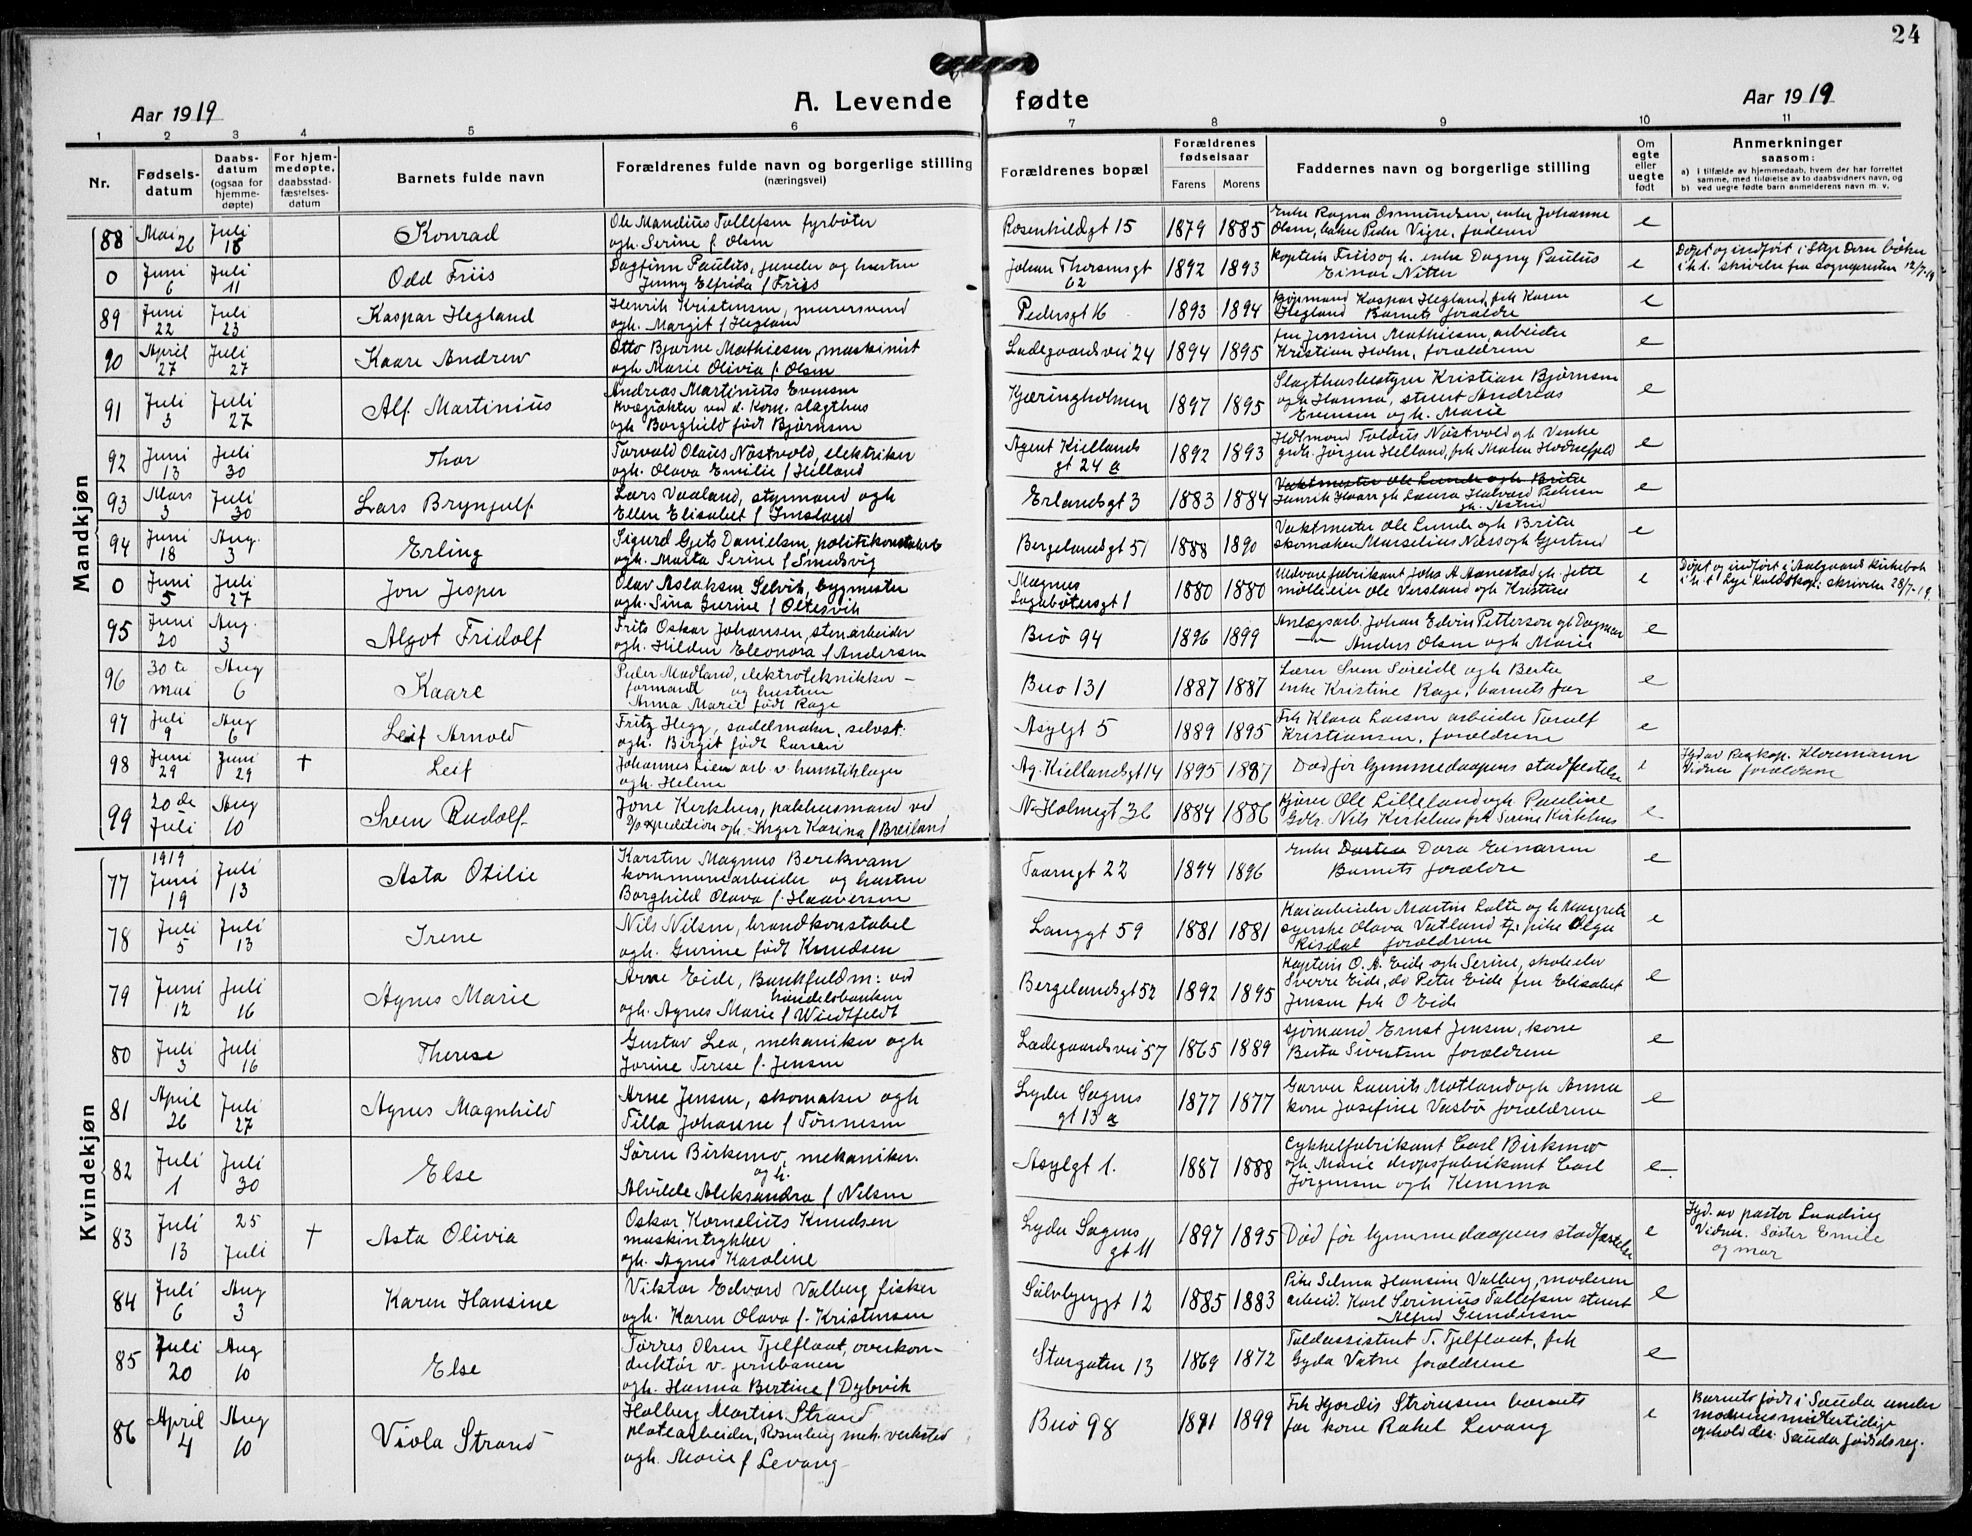 24
Aar 1919
A. Levende fødte
Aar 1919
1 2 3 4 5 6 7 8 9 10 11
Nr.
Fødsels-
datum
Daabs-
datum
(ogsaa for
hjemme-
døpte)
For hjem-
medøpte,
daabsstad-
fæstelses-
datum
Barnets fulde navn
Forældrenes fulde navn og borgerlige stilling
(næringsvei)
Forældrenes bopæl
Forældrenes
fødselsaar
Farens Morens
Faddernes navn og borgerlige stilling
Om
egte
eller
uegte
født
Anmerkninger
saasom:
a) i tilfælde av hjemmedaab, hvem der har forrettet
samme, med tilføielse av to daabsvidners navn, og
b) ved uegte fødte barn anmelderens navn m. v.
Mandkjøn
88 Mai 26 Juli 18 Konrad
Ole Mandius Tollefsen fyrbøter
ogh. Serine f Olsen
Rosenkildegt 15 1879 1885
Enke Ragna Osmundsen, enke Johanne
Olsen, Peder Vigre, faderen
e
0 Juni 6 Juli 11 Odd Friis
Dagfinn Paulus, og hustru
Jenny Elfrida f Friis
Johan Thorsensgt
62
1892 1893
Kaptein Friis ogh. enke Dagny Paulus
Einar Nitter
e
Døpt og indført i
12/7-19
89 Juni 22 Juli 23 Kaspar Hegland
Henrik Kristensen, murersvend
ogh. Margit f Hegland
Pedersgt 16 1893 1894
Kjøpmand Kaspar Hegland, frk Karen
Hegland Barnets forældre
e
90 April 27 Juli 27 Kaare Andrew
Otto Bjarne Mathiesen, maskinist
ogh Marie Olivia f. Olsen
Ladegaardsvei 24 1894 1895
fru Jensine Mathiesen, arbeider
Kristian Holm, forældrene
e
91 Juli 3 Juli 27 Alf Martinius
Andreas Martinius Evensen
kvægrøkter ved d. Kom. slagthus
ogh Borghild født Bjørnsen
Kjæringholmen 1897 1895
Slagthusbestyrer Kristian Bjørnsen
ogh Hanna, stuert Andreas
Evensen ogh. Marie
e
92 Juni 13 Juli 30 Thor
Torvald Olaus Nøstvold, elektriker
ogh. Olava Emilie f Helland
Agent Kiellands
gt 24 a
1892 1893
Nøstvold ogh
Jørgen Helland, frk Malen
e
93 Mars 3 Juli 30 Lars Brynjulf
Lars Vaaland, styrmand ogh
Ellen Elisabet f Imsland
Erlandsgt 3 1883 1884
Vaktmester Ole Lunde ogh Brita
Henrik Haar ogh Laura Halvard Pedersen
gh. Astrid
e
94 Juni 18 Aug. 3 Erling
Sigurd Gjets Danielsen, politikonstabel
ogh. Marta Serine f Smedsvig
Bergelandsgt 51 1888 1890
Vaktmester Ole Lunde ogh Brita
skomaker Marselius Næss ogh Gjertrud
e
0 Juni 5 Juli 27 Jon Jesper
Olav Aslaksen Selvik, bygmester
ogh. Sina Gurine f Oltesvik
Magnus
Lagabøtersgt 1
1880 1880
Uldvarefabrikant Johs A Aanestad gh. Jette
mølleier Ole Versland ogh Kristine
e
Døpt og indført i Aalgaard Kirkebok
i h. t. Lye Kaldskap. skrivelse 28/7-19.
95 Juni 20 Aug. 3 Algot Fridolf
Frits Oskar Johansen, stenarbeider
ogh. Hildur Eleonora f Andersen
Buø 94 1896 1899
Anlegsarb. Johan Edvin Pettersson gh Dagmar
Anders Olsen ogh Marie
e
96 30te mai Aug 6 Kaare
Peder Madland, elektrotekniker-
formand og hustru
Anna Marie født Rage
Buø 131 1887 1887
Lærer Sven Søreide ogh Berta
enke Kristine Rage, barnets far
e
97 Juli 9 Aug 6 Leif Arnold
Fritz Hegg, sadelmaker, selvst.
ogh. Birgit født Larsen
Asylgt 5 1889 1895
Frk Klara Larsen arbeider Toralf
Kristiansen, forældrene
e
98 Juni 29 Juni 29 † Leif
Johannes Lien arb. v.
ogh. Helene
Ag. Kiellandsgt 14 1895 1887
Død før hjemmedaapens stadfæstelse
e
Hjd av Klovemann
Vidner forældrene
99 20de Juli Aug 10 Svein Rudolf
Jone Kirkhus, pakhusmand ved
ogh. Inger Karina f Breiland
N. Holmegt 36 1884 1886
Kjører Ole Lilleland ogh. Pauline
Gdr. Nils Kirkhus frk Serine Kirkhus
e
Kvindekjøn
77 1919 Juni 19 Juli 13 Asta Otilie
Karsten Magnus Berekvam
kommunearbeider og hustru
Borghild Olava f. Haaversen
Taarngt 22 1894 1896
Enke Dora Einarsen
Barnets forældre
e
78 Juli 5 Juli 13 Irene
Nils Nilsen, brandkonstabel
ogh. Gurine født Knudsen
Langgt 59 1881 1881
Kaiarbeider Martin Lalte ogh Margrete
syerske Olava Vatland tj. pike Olga
Risdal forældrene
e
79 Juni 12 Juli 16 Agnes Marie
Arne Eide, Bankfuldm: ved
handelsbanken
ogh. Agnes Marie f Wiedtfeldt
Bergelandsgt 52 1892 1895
Kaptein O. A. Eide ogh Serine, skoleelev
Sverre Eide, do Peter Eide fru Elisabet
Jensen frk O Eide
e
80 Juli 3 Juli 16 Therese
Gustav Lea, mekaniker ogh
Jorine Terese f. Jensen
Ladegaardsvei 57 1865 1889
sjømand Ernst Jensen, kone
Berta Sivertsen forældrene
e
81 April 26 Juli 27 Agnes Magnhild
Arne Jensen, skomaker ogh
Tilla Johanne f Tønnesen
Lyder Sagens
gt 13 a
1877 1877
Garver Laurits Motland ogh Anna
kone Josefine Vasbø forældrene
e
82 Juli 1 Juli 30 Else
Søren Birkemo, mekaniker.
og h.
Alvilde Aleksandra f Nilsen
Asylgt 1. 1887 1888
Cykkelfabrikant Carl Birkemo
ogh. Marie dropsfabrikant Carl
Jørgensen ogh Kemma
e
83 Juli 13 25 Juli † Asta Olivia
Oskar Kornelius Knudsen
maskintrykker
ogh. Agnes Karoline
Lyder Sagens
gt 11
1897 1895
Død før hjemmedaapens stadfæstelse
e
Hjd. av pastor Lunding
Vidner. Søster Emilie
og mor
84 Juli 6 Aug 3 Karen Hansine
Viktor Edvard Valberg fisker
ogh. Karen Olava f. Kristensen
Sølvbergt 12 1885 1883
Pike Selma Hansine Valberg, moderen
arbeid. Karl Serinius Tollefsen stuert
Alfred Gundersen
e
85 Juli 20 Aug 10 Else
Torres Olsen Tjelflaat, overkon-
duktør v. jernbanen
ogh. Hanna Bertine f Dybvik
Storgaten 13 1869 1872
Toldassistent T. Tjelflaat, frk
Gyda Vatne forældrene
e
86 April 4 Aug 10 Viola Strand
Halberg Martin Strand
platearbeider, Rosenberg mek. verksted
ogh. Marie f Levang
Buø 98 1891 1899
Frk Hjørdis Strømsem barnets
far kone Rakel Levang
e
Barnet født i Sauda under
moderens midlertidige
ophold der. Sauda fødselsreg.